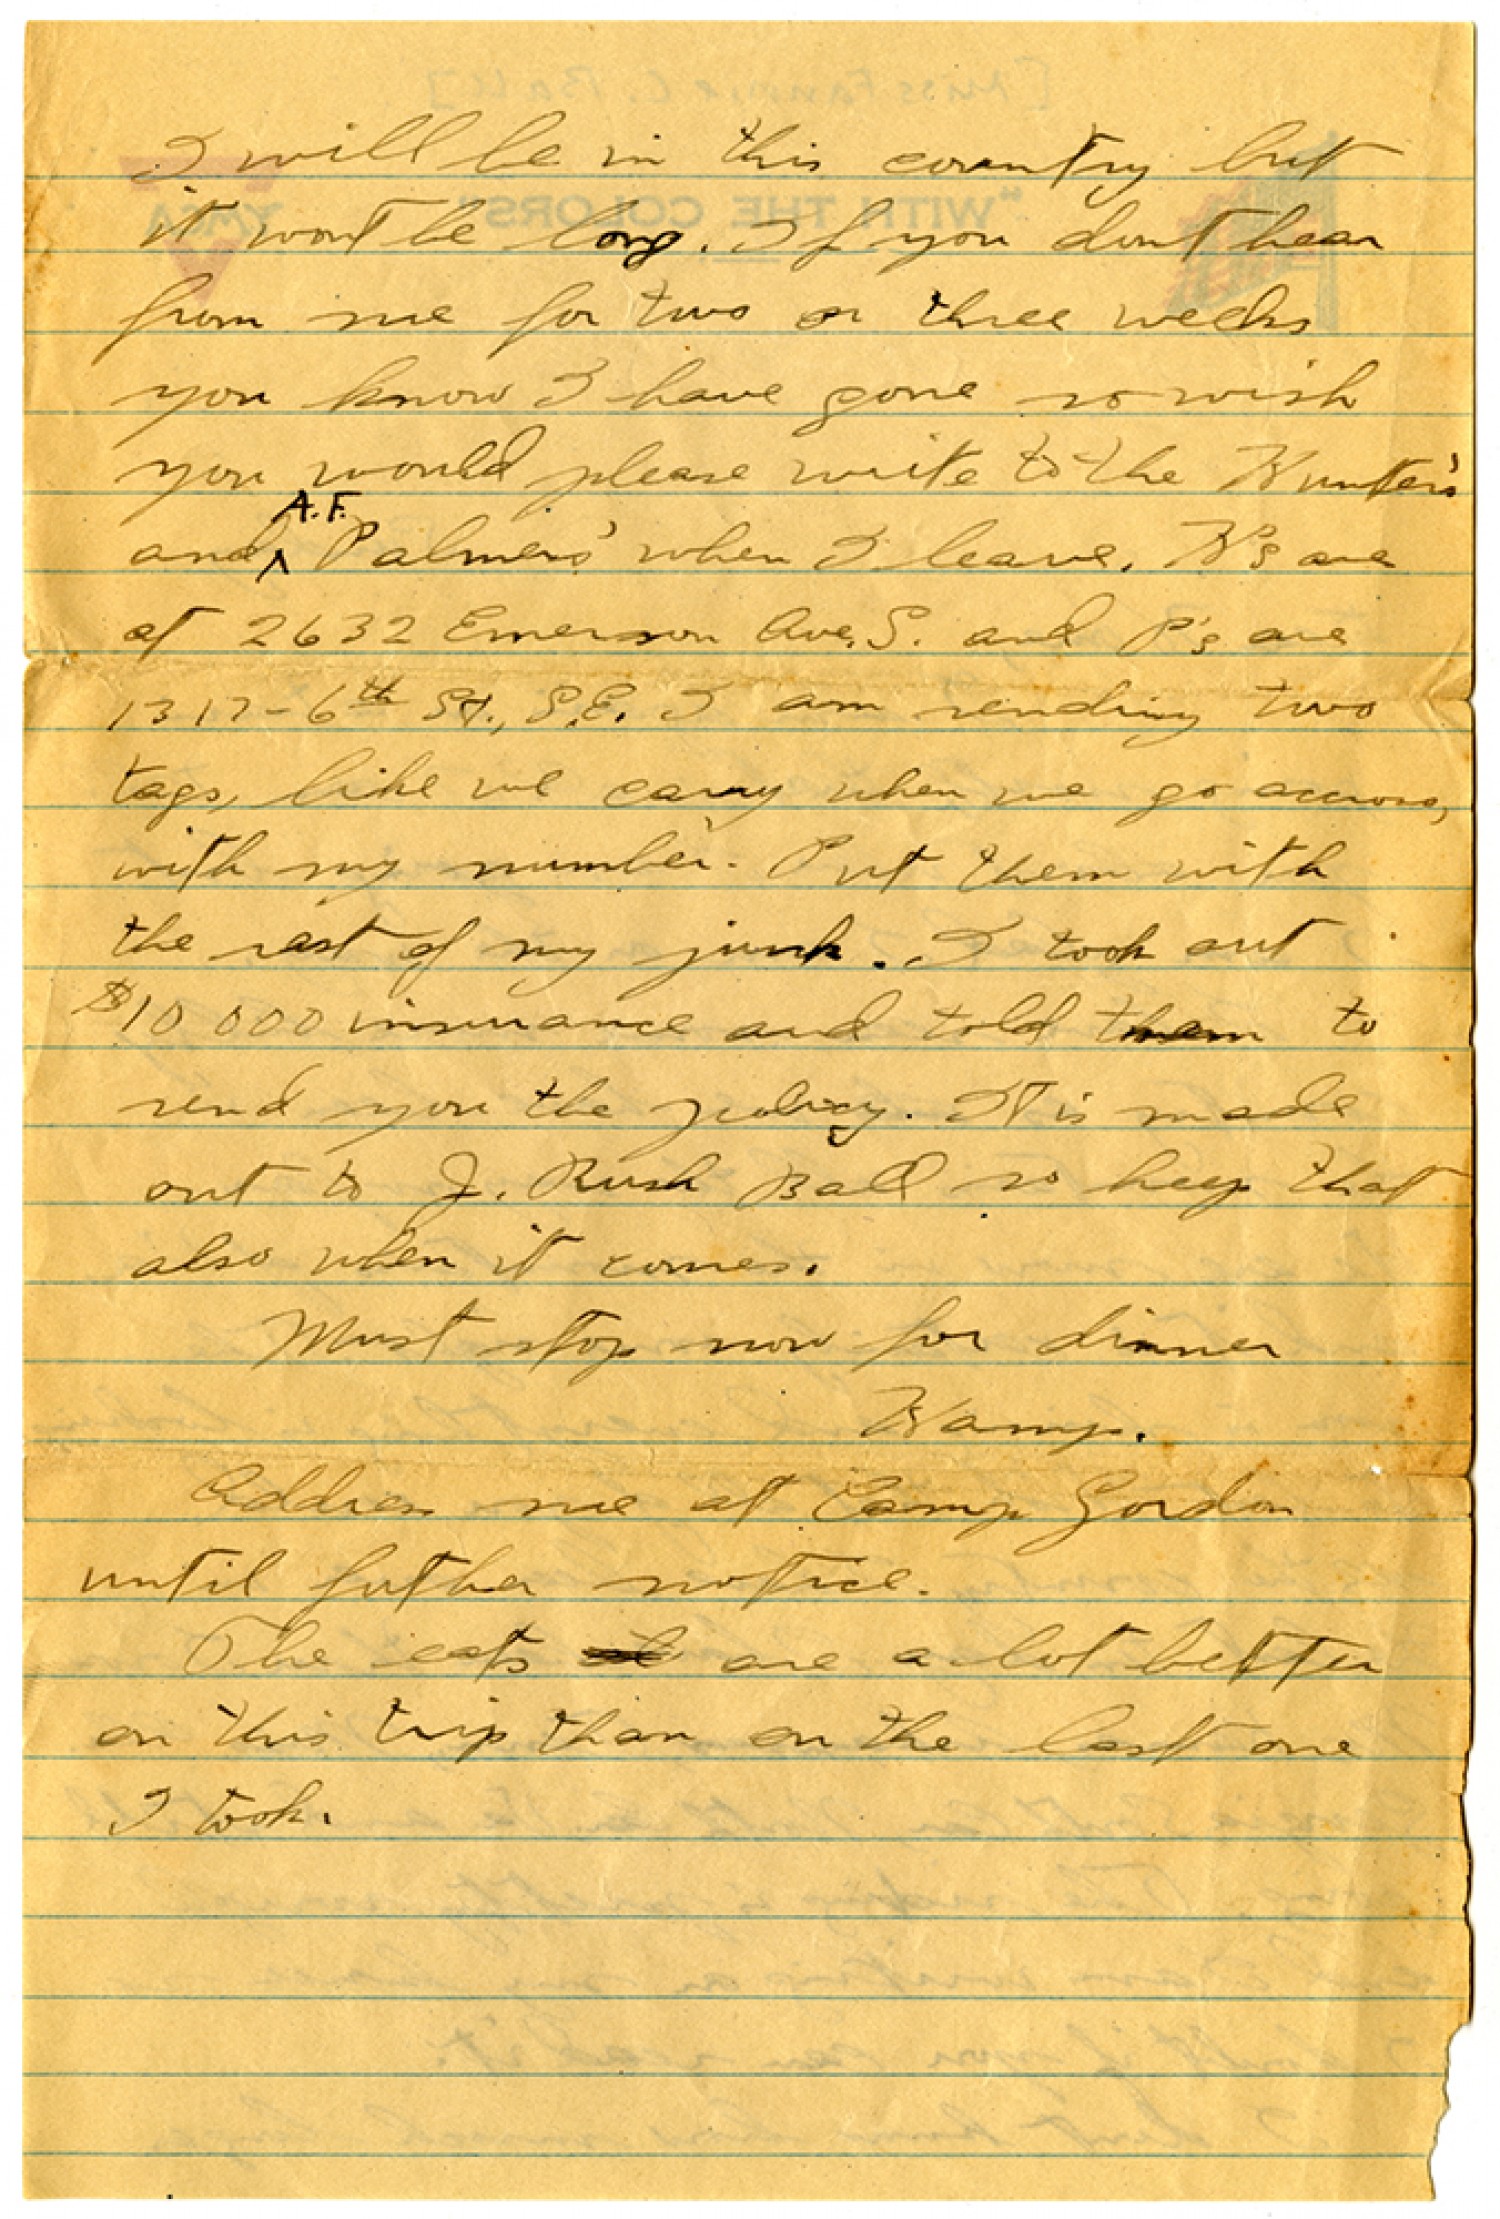 I will be in this country but
it wont be long. If you dont hear
from me for two or three weeks
you know I have gone so wish
you would please write to the Hunter's
and A.F. Palmers' when I leave. H's are
at 2632 Emerson Ave. S. and P's are
1317-6th St., S.E. I am sending two
tags, like we carry when we go accross,
with my number. Put them with
the rest of my junk. I took out
$10 000 insurance and told them to
send you the policy. It is made
out to J. Rush Ball so keep that
also when it comes.
Must stop now for dinner
Hamp.
Address me at Camp Gordon
until futher notice.
The eats are a lot better
on this trip than on the last one
I took.